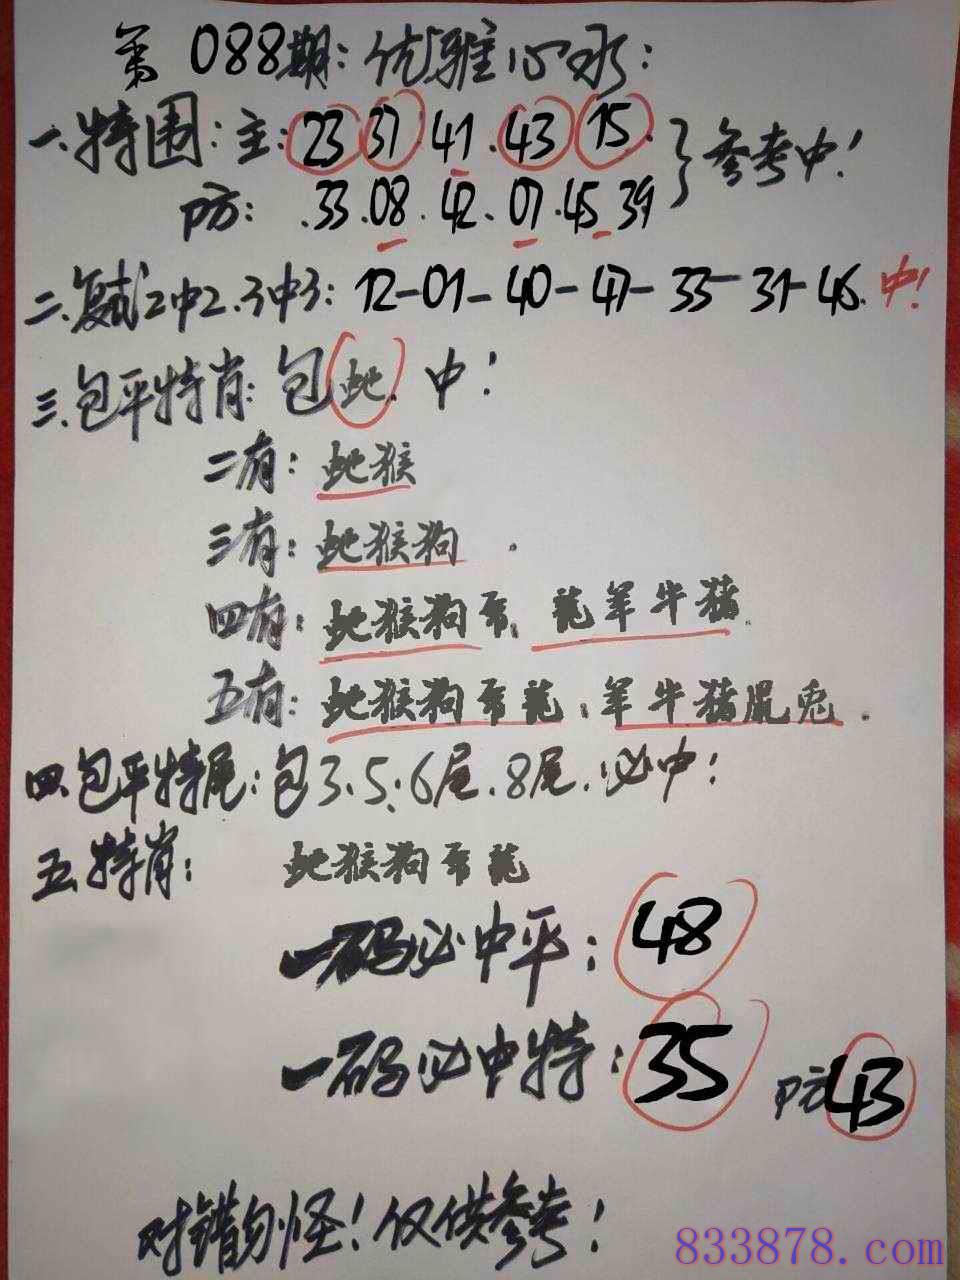 第088期：优雅心水：
一.特围：主：23 37.41.43 15.
防：.33.08.42.07.45 39
参考中！
二.复试2中2.3中3：12-01-40-47-33-31-46.中！
三.包平特肖：包蛇.中！
二有：蛇猴
三有：蛇猴狗.
四有：蛇猴狗 龙羊牛猪.
五有：蛇猴狗 龙.羊牛猪鼠兔.
四.包平特尾：包3.5.6尾.8尾.必中！
五.特肖： 蛇猴狗 龙
一码必中平：48
一码必中特：35 防43
对错勿怪！仅供参考！
833878.com